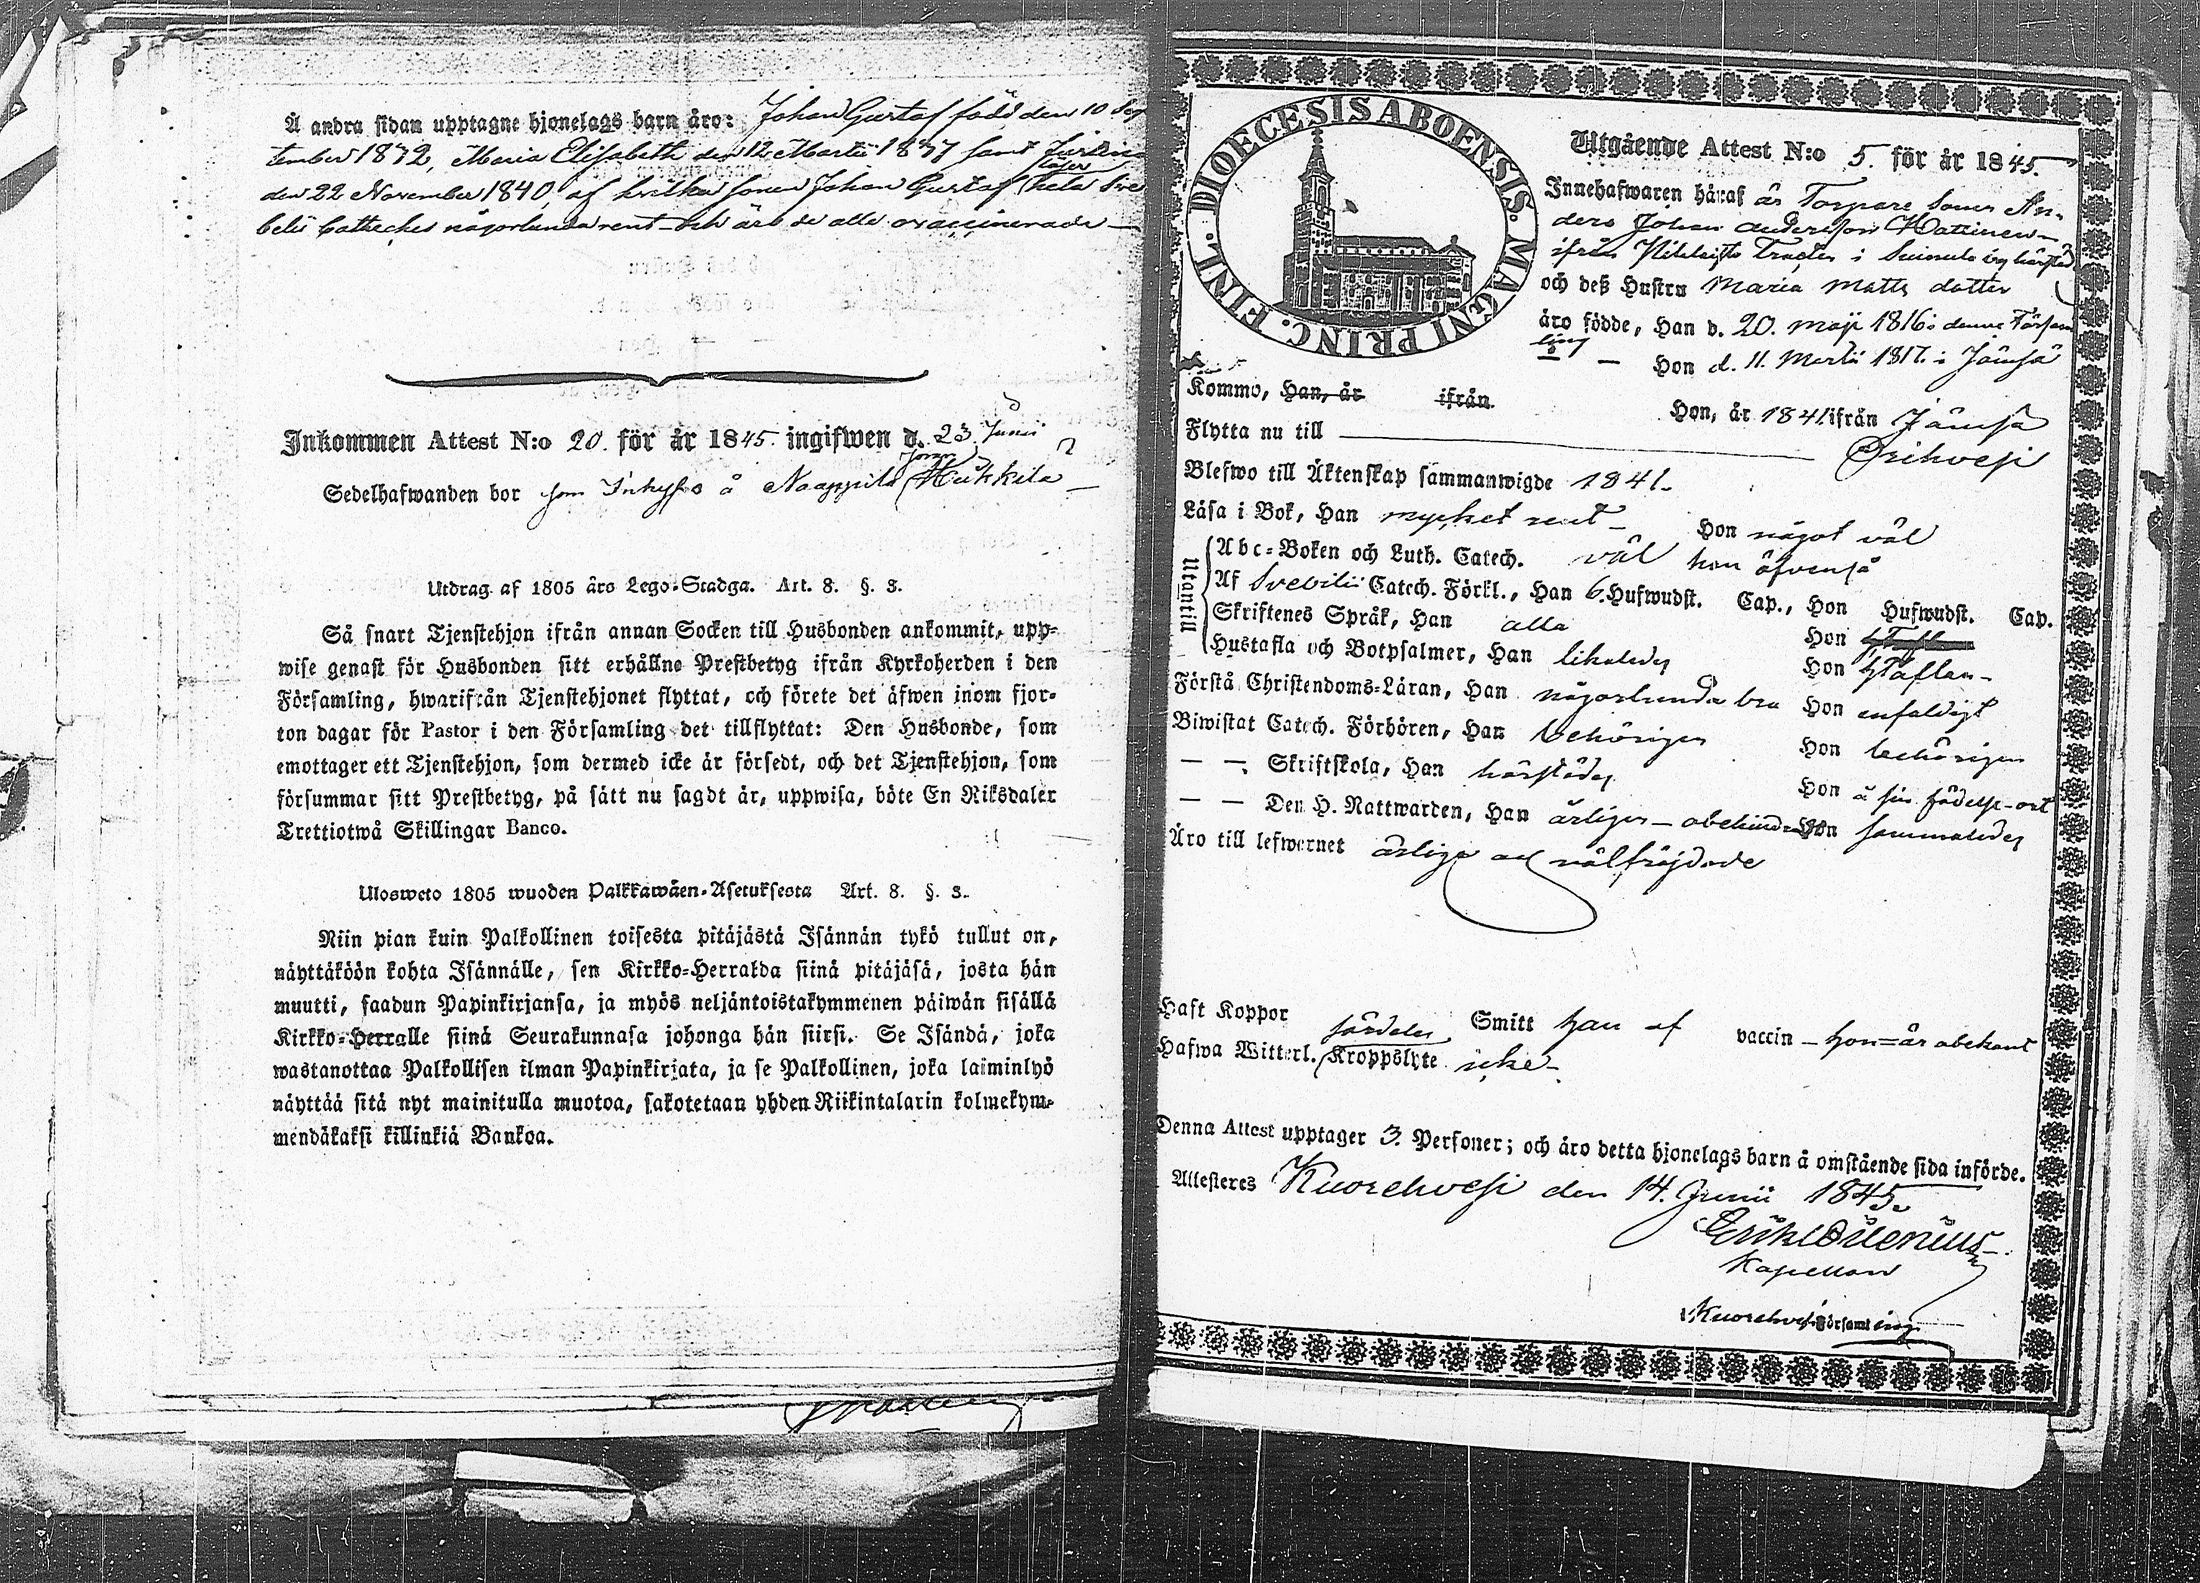 Å andra sidan upptagne hjonelags barn äro: Johan Gustaf född den 10 Sep
tember 1832, Maria Elisabeth den 12 Martii 1837 samt
den 22 November 1840, af hvilka sonen Johan Gustaf läser hela Sve
belii Catheches någorlunda rent och äro de alla ovaccinerade
Inkommen Attest N:o 20. för år 1845. ingifwen d. 23 Junii
Sedelhafwanden bor som Inhyses å Naappila Hukkila
Utdrag af 1805 års Lego-Stadga. Art. 8. §. 3.
Så snart Tjenstehjon ifrån annan Socken till Husbonden ankommit, upp-
wise genast för Husbonden sitt erhållne Prestbetyg ifrån Kyrkoherden i den
Församling, hwarifrån Tjenstehjonet flyttat, och förete det äfwen inom fjor-
ton dagar för Pastor i den Församling det tillflyttat: Den Husbonde, som
emottager ett Tjenstehjon, som dermed icke är försedt, och det Tjenstehjon, som
försummar sitt Prestbetyg, på sätt nu sagdt är, uppwisa, böte En Riksdaler
Trettiotwå Skillingar Banco.
Ulosweto 1805 wuoden Palkkawäen-Asetuksesta Art. 8. §. 3.
Niin pian kuin Palkollinen toisesta pitäjästä Isännän tykö tullut on,
näyttäköön kohta Isännälle, sen Kirkko-Herralda siinä pitäjäsä, josta hän
muutti, saadun Papinkirjansa, ja myös neljäntoistakymmenen päiwän sisällä
Kirkko-Herralle siinä Seurakunnasa johonga hän siirsi. Se Isändä, joka
wastanottaa Palkollisen ilman Papinkirjata, ja se Palkollinen, joka laiminlyö
näyttää sitä nyt mainitulla muotoa, sakotetaan yhden Riikintalarin kolmekym-
mendäkaksi killinkiä Bankoa.
DIOECESIS ABOENSIS. MAGNI PRINC. FINL.
Utgående Attest N:o 5. för år 1845.
Innehafwaren häraf är Torpare Sonen An-
ders Johan Andersson Mattinen
ifrån Trakten i Suinula by härstädes
och deß Hustru Maria Matts dotter
äro födde, Han d. 20. Maji 1816 i denne Försam
ling — Hon d. 11. Martii 1817. i Jämsä
Kommo, Han, år ifrån Hon, år 1841 ifrån Jämsä
Flytta nu till Orihvesi
Blefwo till Äktenskap sammanwigde 1841.
Läsa i Bok, Han mycket rent Hon något väl
Utantill Abc-Boken och Luth. Catech. väl hon äfvenså
Af Svebilii Catech. Förkl., Han 6. Hufwudst. Cap., Hon Hufwudst. Cap.
Skriftenes Språk, Han alla Hon
Hustafla och Botpsalmer, Han likaledes Hon Htaflan
Förstå Christendoms-Läran, Han någorlunda bra Hon enfaldigt
Biwistat Catech. Förhören, Han behörigen Hon behörigen
— — Skriftskola, Han härstädes Hon å sin födelse-ort
— — Den H. Nattwarden, Han årligen obehindrad Hon sammaledes
Äro till lefwernet ärliga och välfräjdade
Haft Koppor Smitt han af vaccin hon är obekant
Hafwa Witterl. särdeles Kroppslyte icke
Denna Attest upptager 3. Personer; och äro detta hjonelags barn å omstående sida införde.
Attesteres Kuorehvesi den 14. Junii 1845.
Kapellan
i Kuorehvesi Församling